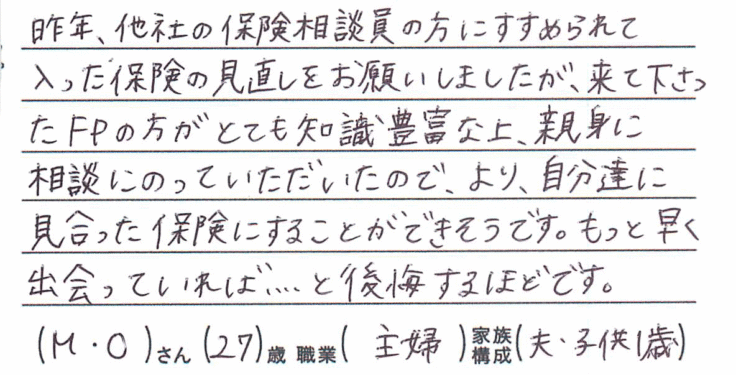 昨年、他社の保険相談員の方にすすめられて
入った保険の見直しをお願いしましたが、来て下さっ
たFPの方がとても知識豊富な上、親身に
相談にのっていただいたので、より、自分達に
見合った保険にすることができそうです。もっと早く
出会っていれば....と後悔するほどです。
(M・O)さん(27)歳 職業(主婦)家族構成(夫・子供1歳)